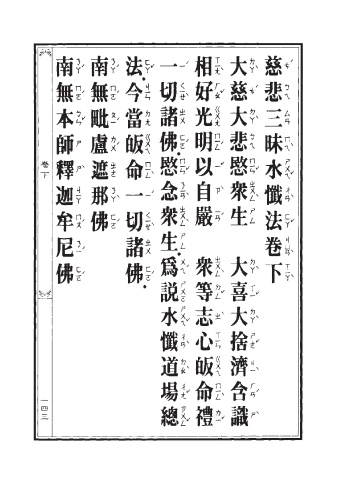 慈悲三昧水懺法卷下
大慈大悲愍眾生　大喜大捨濟含識
相好光明以自嚴　眾等志心皈命禮
一切諸佛．愍念眾生．為說水懺道場總
法．今當皈命一切諸佛．
南無毗盧遮那佛
南無本師釋迦牟尼佛
卷下
一四三